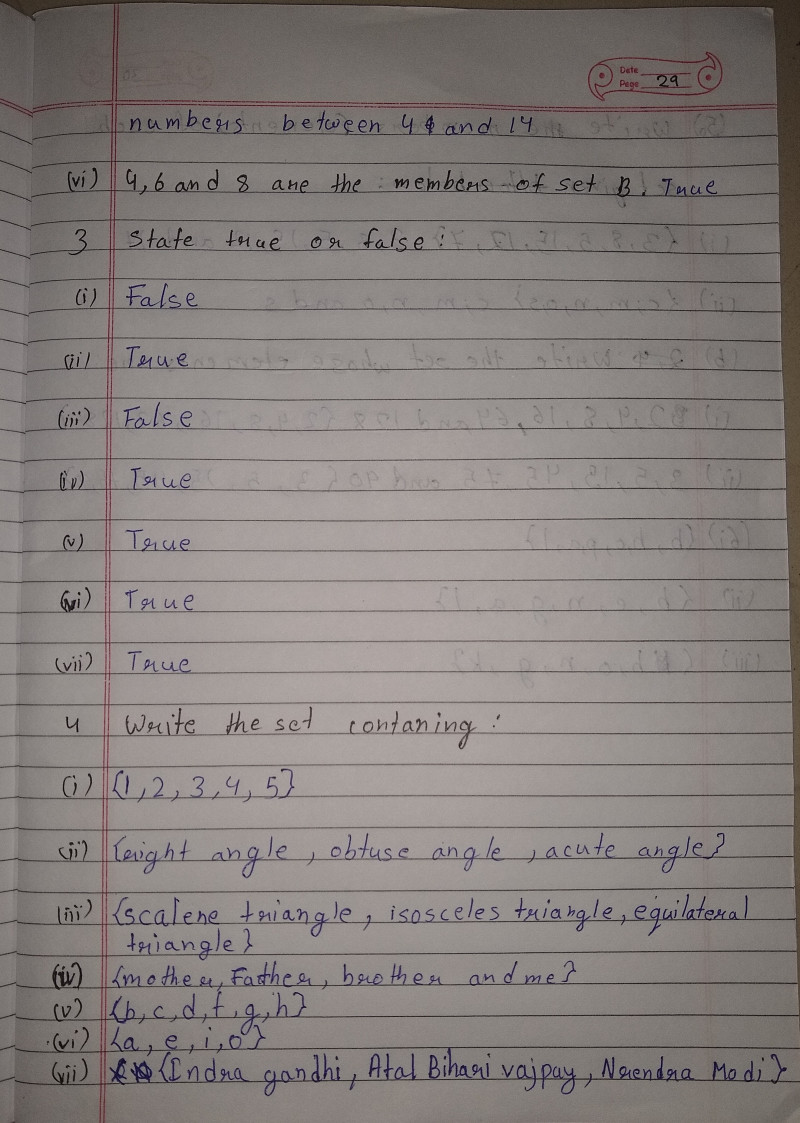 Date
Page 29
numbers between 4 and 14
(vi) 4, 6 and 8 are the members of set B. True
3 State true or false:
(i) False
(ii) True
(iii) False
(iv) True
(v) True
(vi) True
(vii) True
4 Write the set contaning:
(i) {1, 2, 3, 4, 5}
(ii) {right angle, obtuse angle, acute angle}
(iii) {scalene triangle, isosceles triangle, equilateral
triangle}
(iv) {mother, Father, brother and me}
(v) {b, c, d, f, g, h}
(vi) {a, e, i, o}
(vii) {Indra gandhi, Atal Bihari vajpay, Nrendra Modi}